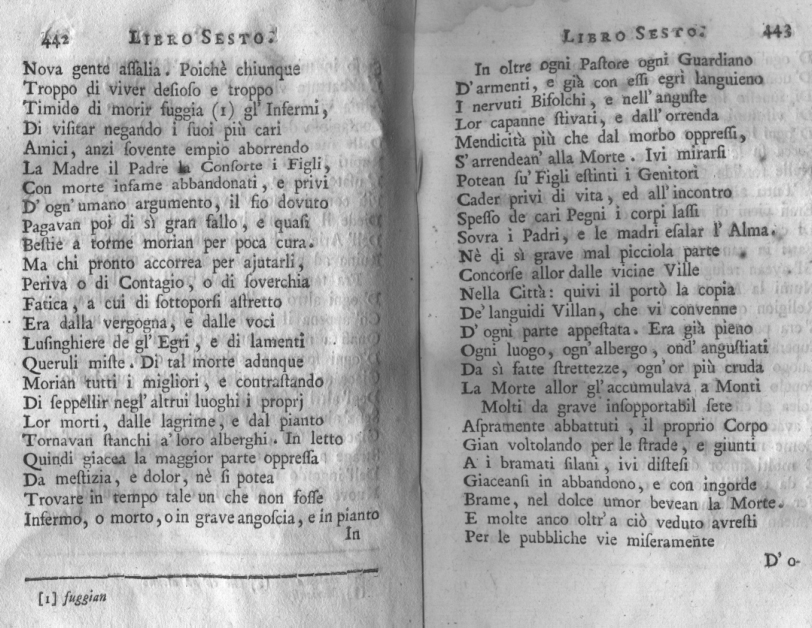 442 LIBRO SESTO.
Nova gente aſſalia. Poichè chiunque
Troppo di viver deſioſo e troppo
Timido di morir fuggia (1) gl' Infermi,
Di viſitar negando i ſuoi più cari
Amici, anzi ſovente empio aborrendo
La Madre il Padre la Conſorte i Figli,
Con morte infame abbandonati, e privi
D' ogn' umano argumento, il fio dovuto
Pagavan poi di sì gran fallo, e quaſi
Beſtie a torme morian per poca cura.
Ma chi pronto accorrea per ajutarli,
Periva o di Contagio, o di ſoverchia
Fatica, a cui di ſottoporſi aſtretto
Era dalla vergogna, e dalle voci
Luſinghiere de gl' Egri, e di lamenti
Queruli miſte. Di tal morte adunque
Morian tutti i migliori, e contraſtando
Di ſeppellir negl' altrui luoghi i proprj
Lor morti, dalle lagrime, e dal pianto
Tornavan ſtanchi a' loro alberghi. In letto
Quindi giacea la maggior parte oppreſſa
Da meſtizia, e dolor, nè ſi potea
Trovare in tempo tale un che non foſſe
Infermo, o morto, o in grave angoſcia, e in pianto
In
[1] fuggian
LIBRO SESTO. 443
In oltre ogni Paſtore ogni Guardiano
D' armenti, e già con eſſi egri languieno
I nervuti Bifolchi, e nell' anguſte
Lor capanne ſtivati, e dall' orrenda
Mendicità più che dal morbo oppreſſi,
S' arrendean' alla Morte. Ivi mirarſi
Potean ſu' Figli eſtinti i Genitori
Cader privi di vita, ed all' incontro
Speſſo de cari Pegni i corpi laſſi
Sovra i Padri, e le madri eſalar l' Alma.
Nè di sì grave mal picciola parte
Concorſe allor dalle vicine Ville
Nella Città: quivi il portò la copia
De' languidi Villan, che vi convenne
D' ogni parte appeſtata. Era già pieno
Ogni luogo, ogn' albergo, ond' anguſtiati
Da sì fatte ſtrettezze, ogn' or più cruda
La Morte allor gl' accumulava a Monti
Molti da grave inſopportabil ſete
Aſpramente abbattuti, il proprio Corpo
Gian voltolando per le ſtrade, e giunti
A i bramati ſilani, ivi diſteſi
Giaceanſi in abbandono, e con ingorde
Brame, nel dolce umor bevean la Morte.
E molte anco oltr' a ciò veduto avreſti
Per le pubbliche vie miſeramente
D' o-